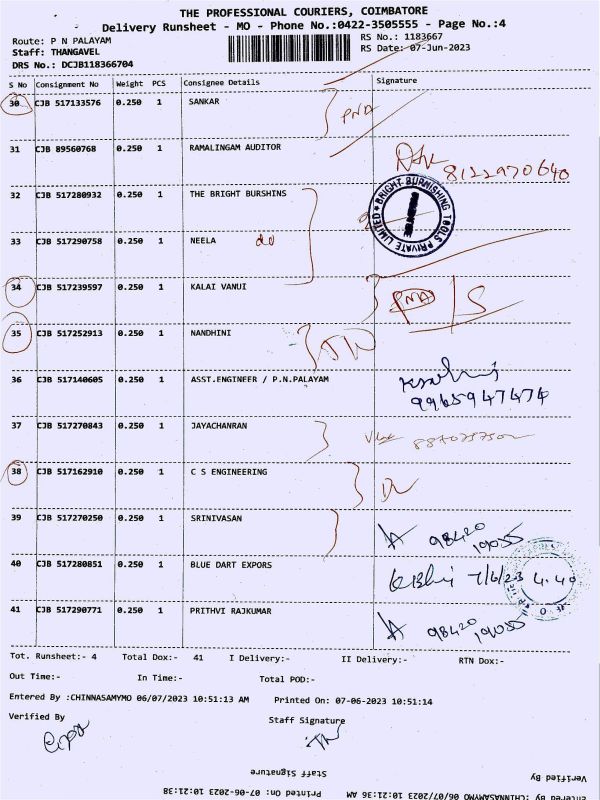 THE PROFESSIONAL COURIERS, COIMBATORE
Delivery Runsheet - MO - Phone No.:0422-3505555 - Page No.:4
Route: P N PALAYAM
RS No.: 1183667
Staff: THANGAVEL
RS Date: 07-Jun-2023
DRS No.: DCJB118366704
S No Consignment No Weight PCS Consignee Details Signature
30 CJB 517133576 0.250 1 SANKAR PNA
31 CJB 89560768 0.250 1 RAMALINGAM AUDITOR
8122970640
32 CJB 517280932 0.250 1 THE BRIGHT BURSHINS
BRIGHT BURNISHING TOOLS PRIVATE LIMITED
33 CJB 517290758 0.250 1 NEELA do
34 CJB 517239597 0.250 1 KALAI VANUI PNA S
35 CJB 517252913 0.250 1 NANDHINI
36 CJB 517140605 0.250 1 ASST.ENGINEER / P.N.PALAYAM
9965947474
37 CJB 517270843 0.250 1 JAYACHANRAN
38 CJB 517162910 0.250 1 C S ENGINEERING DL
39 CJB 517270250 0.250 1 SRINIVASAN 98420 19055
40 CJB 517280851 0.250 1 BLUE DART EXPORS 7/6/23 4.40
41 CJB 517290771 0.250 1 PRITHVI RAJKUMAR 98420 19055
Tot. Runsheet:- 4 Total Dox:- 41 I Delivery:- II Delivery:- RTN Dox:-
Out Time:- In Time:- Total POD:-
Entered By :CHINNASAMYMO 06/07/2023 10:51:13 AM Printed On: 07-06-2023 10:51:14
Verified By Staff Signature
Verified By Staff Signature
Entered By :CHINNASAMYMO 06/07/2023 10:21:36 AM Printed On: 07-06-2023 10:21:38